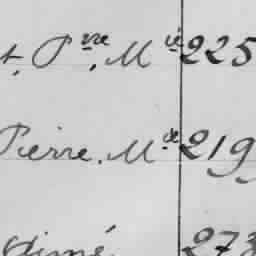 t. Pʳʳᵉ. Mᵈ 225
Pierre. Mᵈ 219
Aimé 273